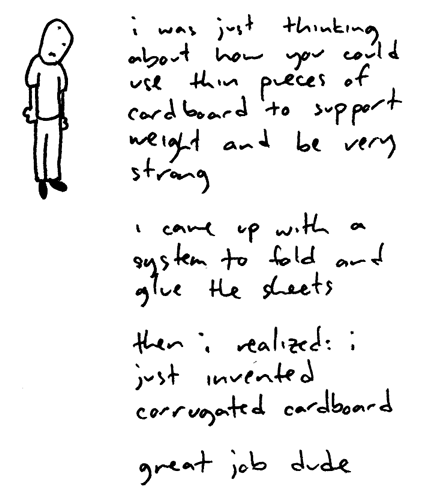 i was just thinking
about how you could
use thin pieces of
cardboard to support
weight and be very
strong
i came up with a
system to fold and
glue the sheets
then i realized: i
just invented
corrugated cardboard
great job dude